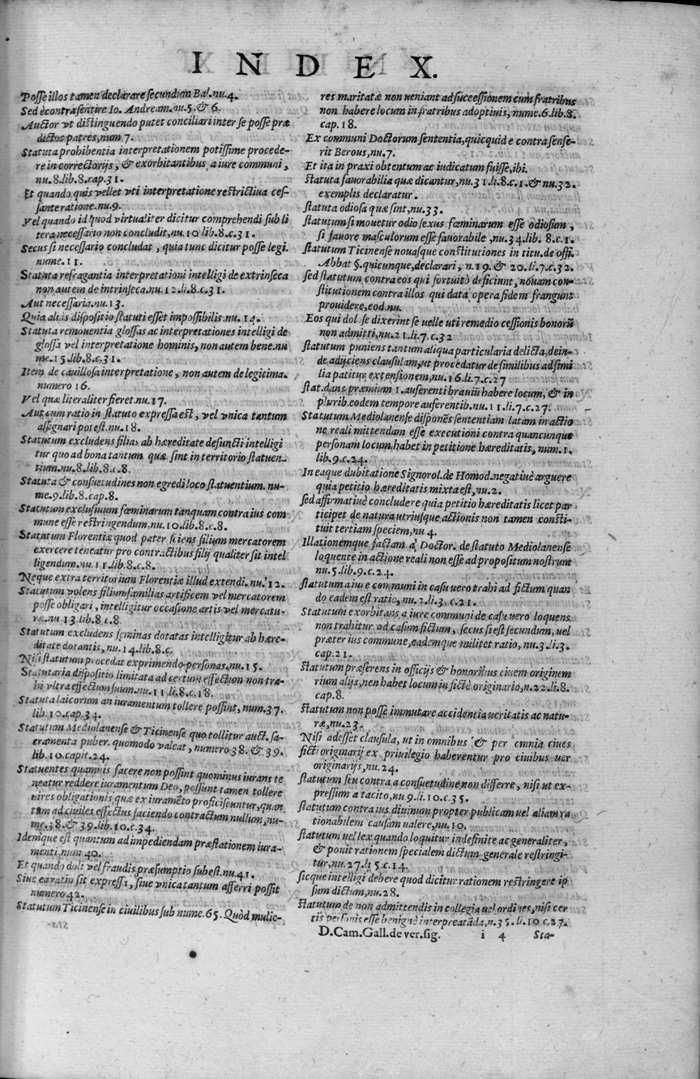 INDEX.
Posse illos tamen declarare secundum Bal. nu.4.
Sed è contra sentire Io. Andream. nu.5. & 6.
Auctor vt distinguendo putet conciliari inter se posse præ
dictos patres, num.7.
Statuta prohibentia interpretationem potissime procede-
re in correctorijs, & exorbitantibus a iure communi,
nu.8.lib.8.cap.31.
Et quando quis vellet vti interpretatione restrictiua ces-
sante ratione. nu.9.
Vel quando id quod virtualiter dicitur comprehendi sub li
tera necessario non concludit, nu.10.lib.8.c.31.
Secus si necessario concludat, quia tunc dicitur posse legi.
nume.11.
Statuta refragantia interpretationi intelligi de extrinseca
non autem de intrinseca. nu.12.li.8.c.31.
Aut necessaria. nu.13.
Quia aliàs dispositio statuti esset impossibilis nu.14.
Statuta remouentia glossas ac interpretationes intelligi de
glossa vel interpretatione hominis, non autem bene. nu
me.15.lib.8.c.31.
Item de cauillosa interpretatione, non autem de legitima.
numero 16.
Vel quæ literaliter fieret. nu.17.
Aut cum ratio in statuto expressa est, vel vnica tantum
assignari potest. nu.18.
Statutum excludens filias ab hæreditate defuncti intelligi
tur quo ad bona tantum quæ sint in territorio statuen-
tium. nu.8.lib.8.c.8.
Statuta & consuetudines non egredi loco statuentium. nu-
me.9.lib.8.cap.8.
Statutum exclusiuum fœminarum tanquam contra ius com
mune esse restringendum, nu.10.lib.8.c.8.
Statutum Florentiæ quod pater sciens filium mercatorem
exercere teneatur pro contractibus filij qualiter sit intel
ligendum. nu.11.lib.8.c.8.
Neque extra territorium Florentiæ illud extendi. nu.12.
Statutum volens filiumfamilias artificem vel mercatorem
posse obligari, intelligitur occasione artis vel mercatu-
ræ. nu.13.lib.8.c.8
Statutum excludens feminas dotatas intelligitur ab hære-
ditate dotantis, nu.14.lib.8.c.
Nisi statutum procedat exprimendo personas. nu.15.
Statutaria dispositio limitata ad certum effectum non tra-
hi vltra effectum suum. nu.11.li.8.c.18.
Statuta laicorum an iuramentum tollere possint, num.37.
lib.10.cap.34.
Statutum Mediolanense & Ticinense quo tollitur auct. sa-
cramenta puber. quomodo valeat, numero 38. & 39.
lib.10.capit.24.
Statuentes quamuis facere non possint quominus iurans te
neatur reddere iuramentum Deo, possunt tamen tollere
uires obligationis quæ ex iuramēto proficiscuntur, quan
tum ad ciuiles effectus faciendo contractum nullum, nu-
me.38. & 39.lib.10.c.34.
Idemque est quantum ad impediendam præstationem iura-
menti num.40.
Et quando doli vel fraudis præsumptio subest. nu.41.
Siue ea ratio sit expressa, siue vnica tantum asserri possit
numero 42.
Statutum Ticinense in ciuilibus sub nume.65. Quòd mulie-
res maritatæ non ueniant ad successionem cum fratribus
non habere locum in fratribus adoptiuis, nume.6.lib.8.
cap.18.
Ex communi Doctorum sententia, quicquid e contra sense-
rit Berous, nu.7.
Et ita in praxi obtentum ac iudicatum fuisse, ibi.
statuta fauorabilia quæ dicantur, nu.31.li.8.c.1.& nu.32.
exemplis declaratur.
statuta odiosa quæ sint, nu.33.
statutum si mouetur odio sexus fœminarum esse odiosum,
si fauore masculorum esse fauorabile, nu.34.lib. 8.c.1.
statutum Ticinense nouasque constitutiones in titu. de offi.
Abbat §. quicunque, declarari, n.19. & 20.li.7.c.32.
sed statutum contra eos qui fortuitò deficiunt, nouam con-
stitutionem contra illos qui data opera fidem frangunt
prouidere, eod.nu.
Eos qui dolose dixerint se uelle uti remedio cessionis bonorū
non admitti, nu.21.li.7.c.32
statutum puniens tantum aliqua particularia delicta, dein-
de adijciens clausulam, ut procedatur de similibus ad simi
lia patitur extensionem, nu.16.li.7.c.27
stat. dans præmium 1. auferenti brauiū habere locum, & in
plurib. eodem tempore auferentib. nu.11.li.7.c.27.
Statutum Mediolanense disponēs sententiam latam in actio
ne reali mittendam esse executioni contra quancunque
personam locum habet in petitione hæreditatis, num.1.
lib.9.c.24.
In eaque dubitatione Signorol. de Homod. negatiuè arguere
quia petitio hæreditatis mixta est, nu.2.
sed affirmatiuè concludere quia petitio hæreditatis licet par
ticipet de natura utriusque actionis non tamen consti-
tuit tertiam speciem, nu 4.
Illationemque factam a Doctor. de statuto Mediolanense
loquente in actione reali non esse ad propositum nostrum
nu.5.lib.9.c.24.
statutum a iure communi in casu uero trahi ad fictum quan
do eadem est ratio, nu.2.li.3.c.21.
Statutum exorbitans a iure communi de casu uero loquens
non trahitur ad casum fictum, secus si est secundum, uel
præter ius commune, eademque militet ratio, nu.3.li.3.
cap.21.
Statutum præferens in officijs & honoribus ciuem originem
rium alijs, non habet locum in fictè originario, n.22.li.8.
cap.8.
Statutum non posse immutare accidentia ueritatis ac natu-
ræ, nu.23.
Nisi adesset clausula, ut in omnibus & per omnia ciues
ficti originarij ex priuilegio haberentur pro ciuibus uer
originarijs, nu.24.
statutum seu contra a consuetudine non differre, nisi ut ex-
pressum a tacito, nu 9.li.10.c.35.
statutum contra ius diuinum propter publicam uel aliam ra-
tionabilem causam ualere, nu.10.
statutum uel lex quando loquitur indefinite ac generaliter,
& ponit rationem specialem dictum generale restringi-
tur, nu.27.li 5 c.14.
sicque intelligi debere quod dicitur rationem restringere ip
sum dictum, nu.28.
Statutum de non admittendis in collegia uel ordines, nisi cer
tis personis esse benignè interpretādā, n.35.li.10 c.27.
D. Cam. Gall. de ver. sig. i 4 Sta-